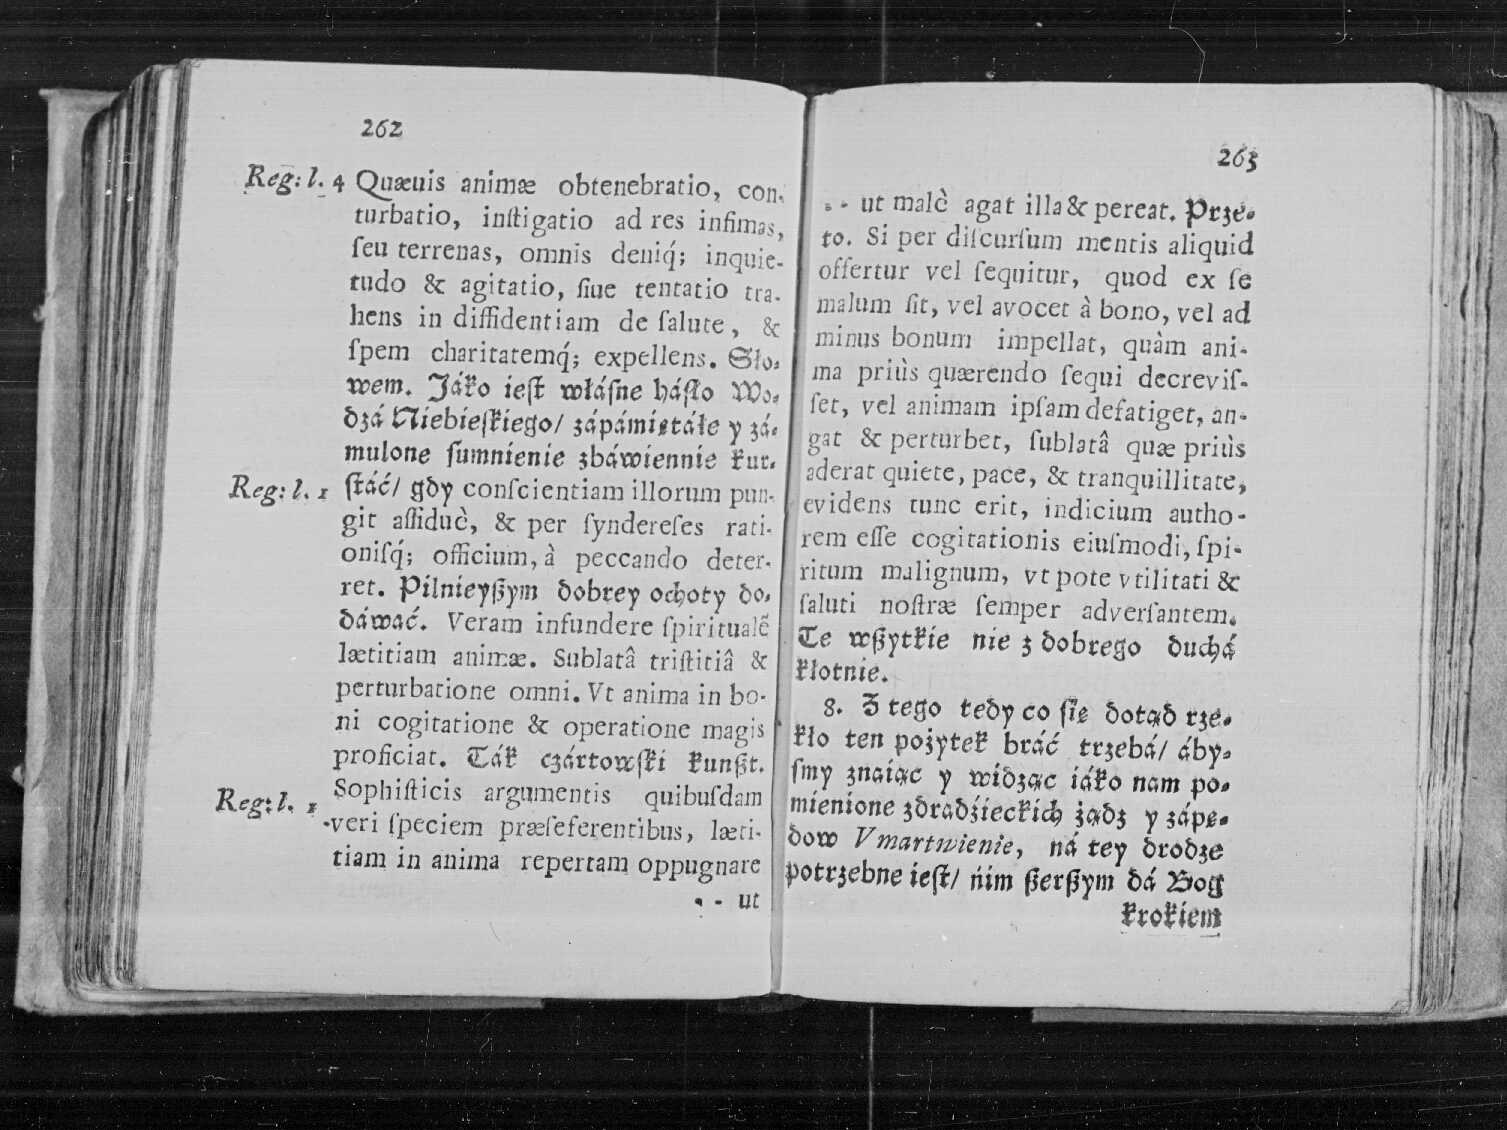 262
Reg: l. 4 Quæuis animæ obtenebratio, con-
turbatio, inſtigatio ad res infimas,
ſeu terrenas, omnis deniq́; inquie-
tudo & agitatio, ſiue tentatio tra-
hens in diffidentiam de ſalute, &
ſpem charitatemq́; expellens. Sło-
wem. Jáko ieſt właſne háſło Wo-
dzá Niebieſkiego/ zápámiętáłe y zá-
mulone ſumnienie zbáwiennie kur-
Reg: l. 1 ſtáć/ gdy conſcientiam illorum pun-
git aſſiduè, & per ſyndereſes rati-
oniſq́; officium, à peccando deter-
ret. Pilnieyßym dobrey ochoty do-
dáwáć. Veram infundere ſpiritualẽ
lætitiam animæ. Sublatâ triſtitiâ &
perturbatione omni. Vt anima in bo-
ni cogitatione & operatione magis
proficiat. Ták czártowſki kunßt.
Reg: l. 1 Sophiſticis argumentis quibuſdam
veri ſpeciem præſeferentibus, læti-
tiam in anima repertam oppugnare
- - ut
263
- - ut malè agat illa & pereat. Prze-
to. Si per diſcurſum mentis aliquid
offertur vel ſequitur, quod ex ſe
malum ſit, vel avocet à bono, vel ad
minus bonum impellat, quàm ani-
ma priùs quærendo ſequi decreviſ-
ſet, vel animam ipſam defatiget, an-
gat & perturbet, ſublatâ quæ priùs
aderat quiete, pace, & tranquillitate,
evidens tunc erit, indicium autho-
rem eſſe cogitationis eiuſmodi, ſpi-
ritum malignum, vt pote vtilitati &
ſaluti noſtræ ſemper adverſantem.
Te wßytkie nie z dobrego duchá
kłotnie.
8. Z tego tedy co ſię dotąd rze-
kło ten pożytek bráć trzebá/ áby-
ſmy znaiąc y widząc iáko nam po-
mienione zdradźieckich żądz y zápę-
dow Vmartwienie, ná tey drodze
potrzebne ieſt/ nim ßerßym dá Bog
krokiem